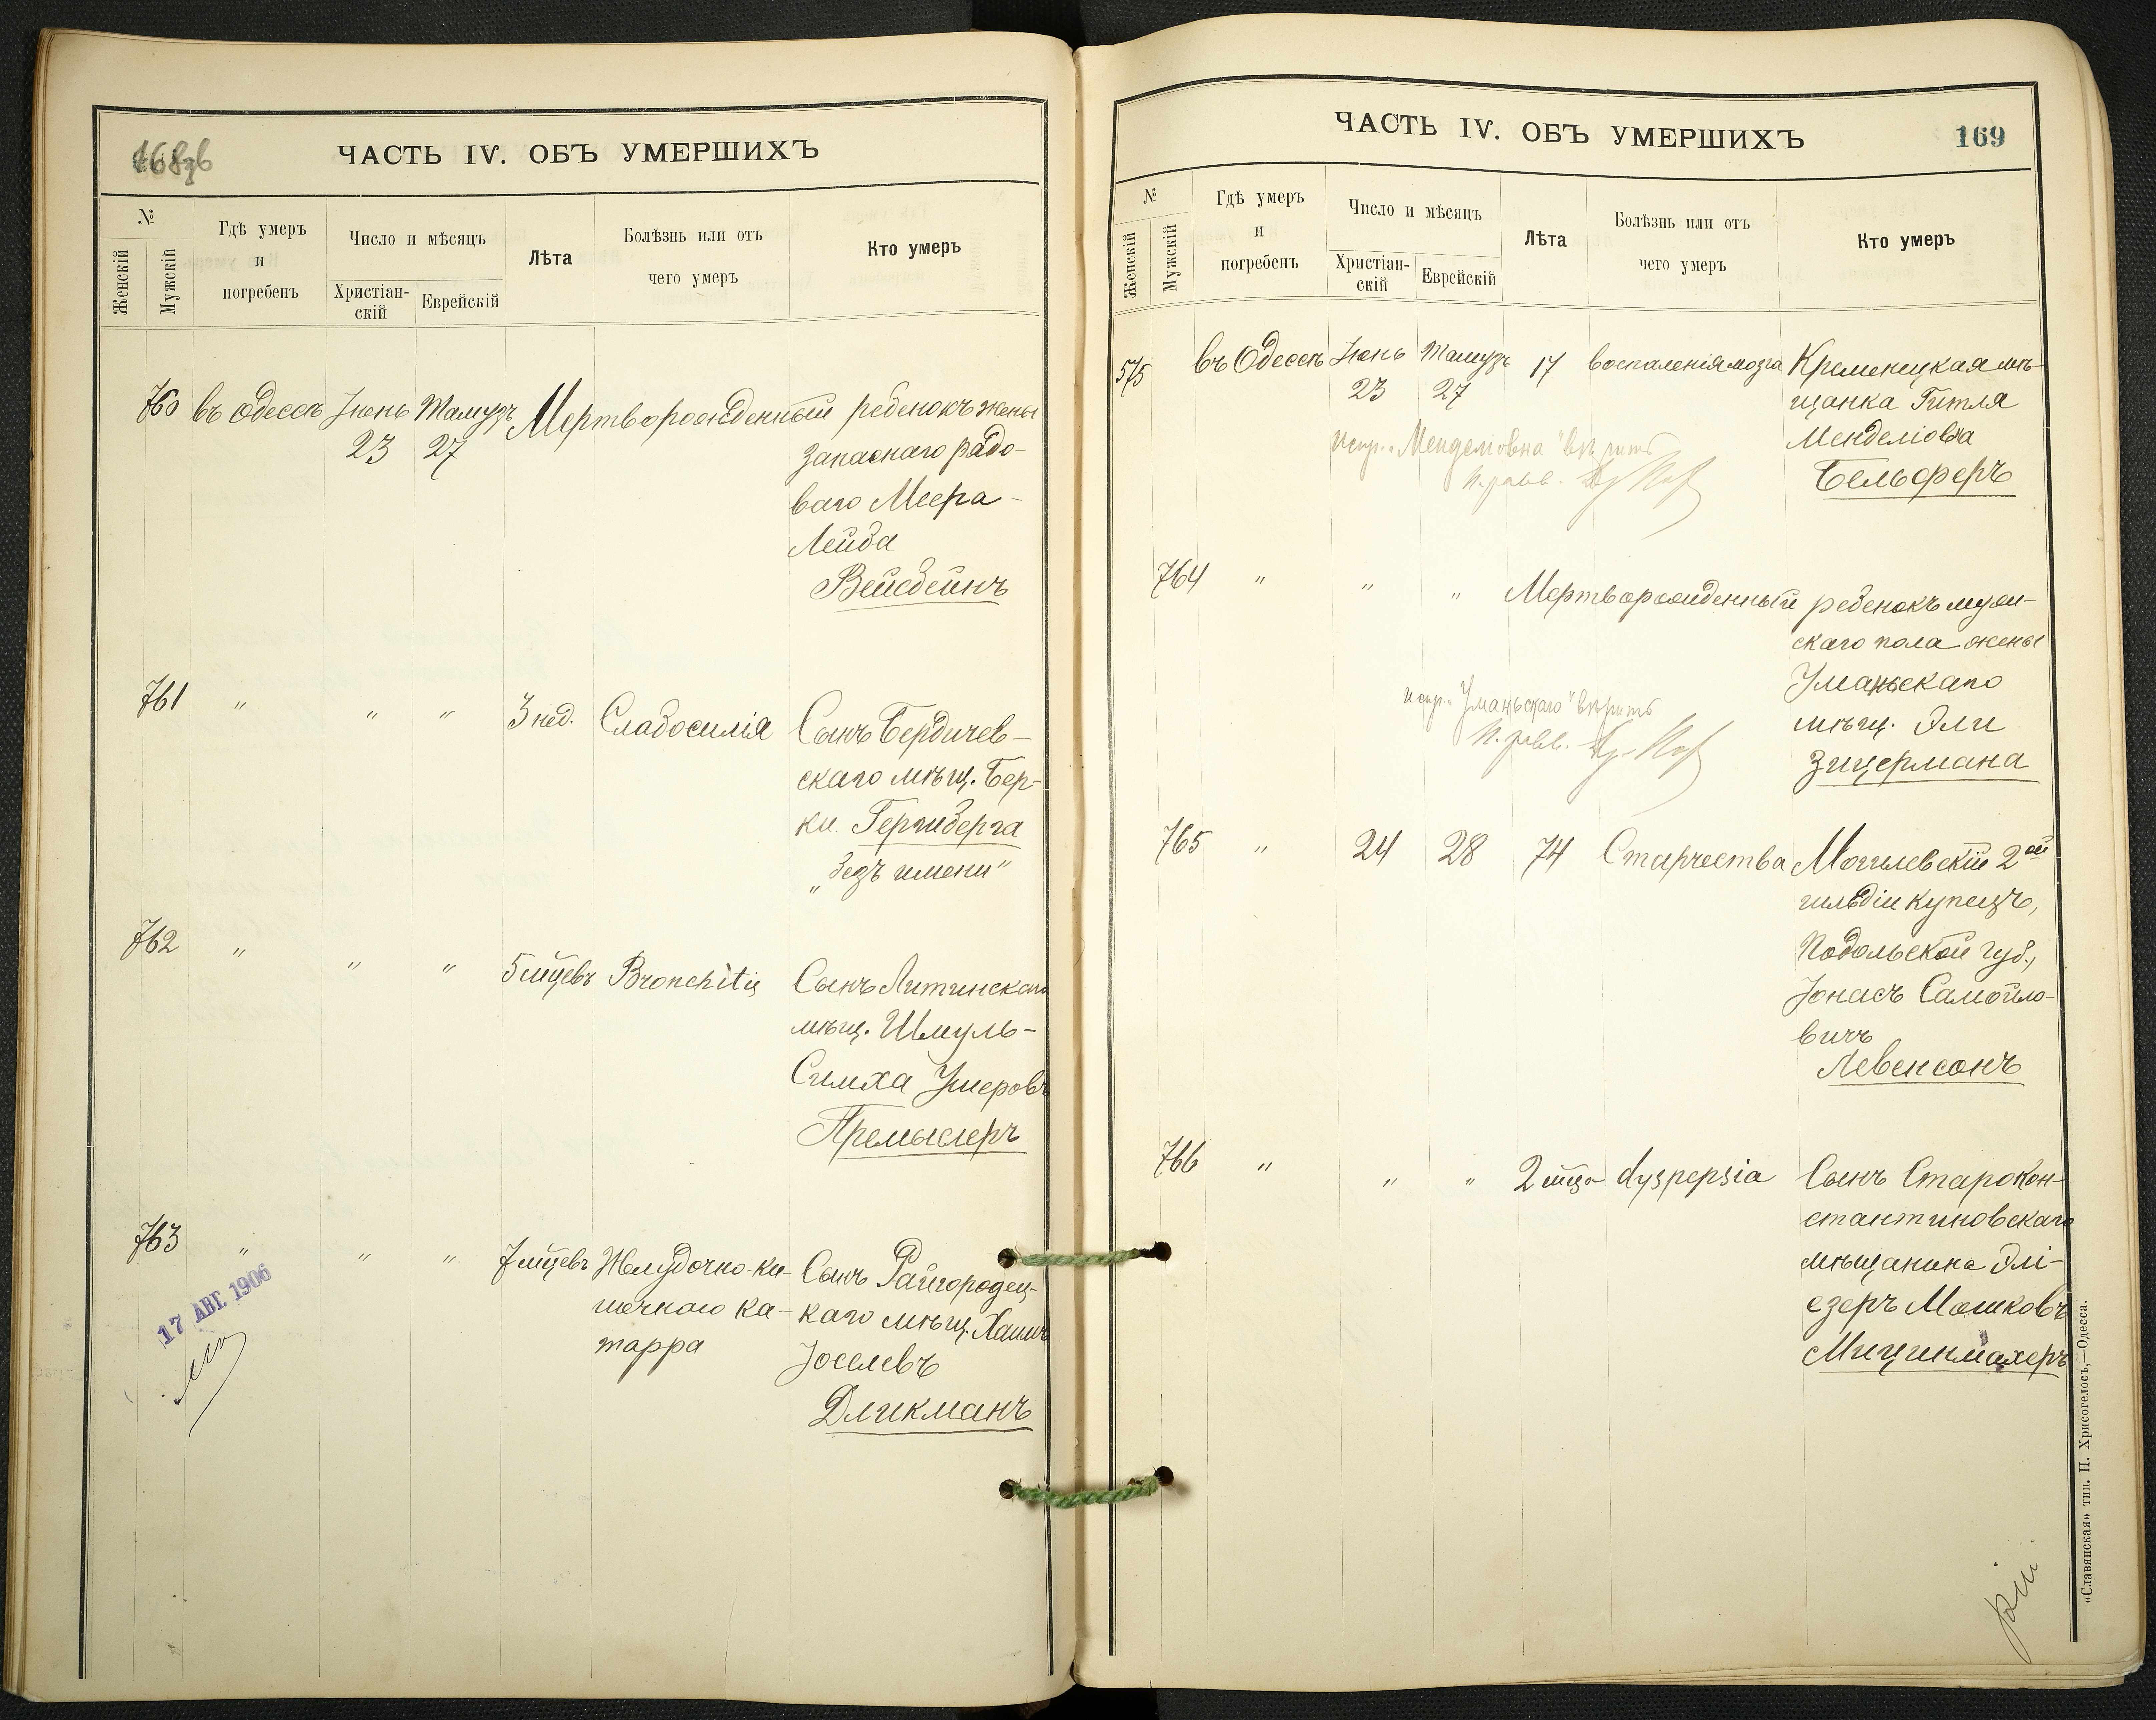 168об
ЧАСТЬ IV. ОБЪ УМЕРШИХЪ
№
Женскій
Мужскій
Гдѣ умеръ
и
погребенъ
Число и мѣсяцъ
Христіан-
скій
Еврейскій
Лѣта
Болѣзнь или отъ
чего умеръ
Кто умеръ
760 въ Одессѣ Іюнь Тамузъ Мертворожденный ребенокъ жены
23 27 запаснаго рядо-
ваго Меера-
Лейба
Вейсбейнъ
761 " " " 3 нед. Слабосилія Сынъ Бердичев-
скаго мѣщ. Бер-
ки Герцберга
"безъ имени"
762 " " " 5 мцевъ Bronchitis Сынъ Литинскаго
мѣщ. Шмуль-
Симха Ушеровъ
Премыслеръ
763 " " " 7 мцевъ Желудочно-ки- Сынъ Райгородец-
шечнаго ка- каго мѣщ. Хаимъ
тарра Іоселевъ
Дликманъ
17 АВГ. 1906
ЧАСТЬ IV. ОБЪ УМЕРШИХЪ
169
№
Женскій
Мужскій
Гдѣ умеръ
и
погребенъ
Число и мѣсяцъ
Христіан-
скій
Еврейскій
Лѣта
Болѣзнь или отъ
чего умеръ
Кто умеръ
575 въ Одессѣ Іюнь Тамузъ 17 воспаленія мозга Кременецкая мѣ-
23 27 щанка Гитля
Испр. "Менделіовна" вѣрить Менделіовна
П. равв. Бельферъ
764 " " " Мертворожденный ребенокъ муж-
скаго пола жены
Уманьскаго
Испр. "Уманьскаго" вѣрить мѣщ. Эли
П. равв. Зицермана
765 " 24 28 74 Старчества Могилевскій 2ой
гильдіи купецъ,
Подольской губ.,
Іонасъ Самойло-
вичъ
Левенсонъ
766 " " " 2 мца dyspepsia Сынъ Старокон-
стантиновскаго
мѣщанина Элі-
езеръ Мошковъ
Мицинмахеръ
«Славянская» тип. Н. Хрисогелосъ,—Одесса.